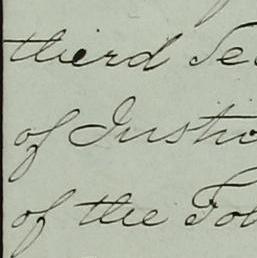 third Se
of Justic
of the To